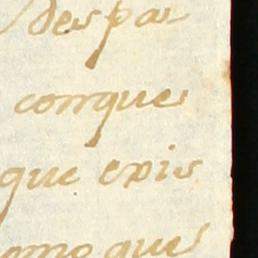 des par
conque
que exis
omo que